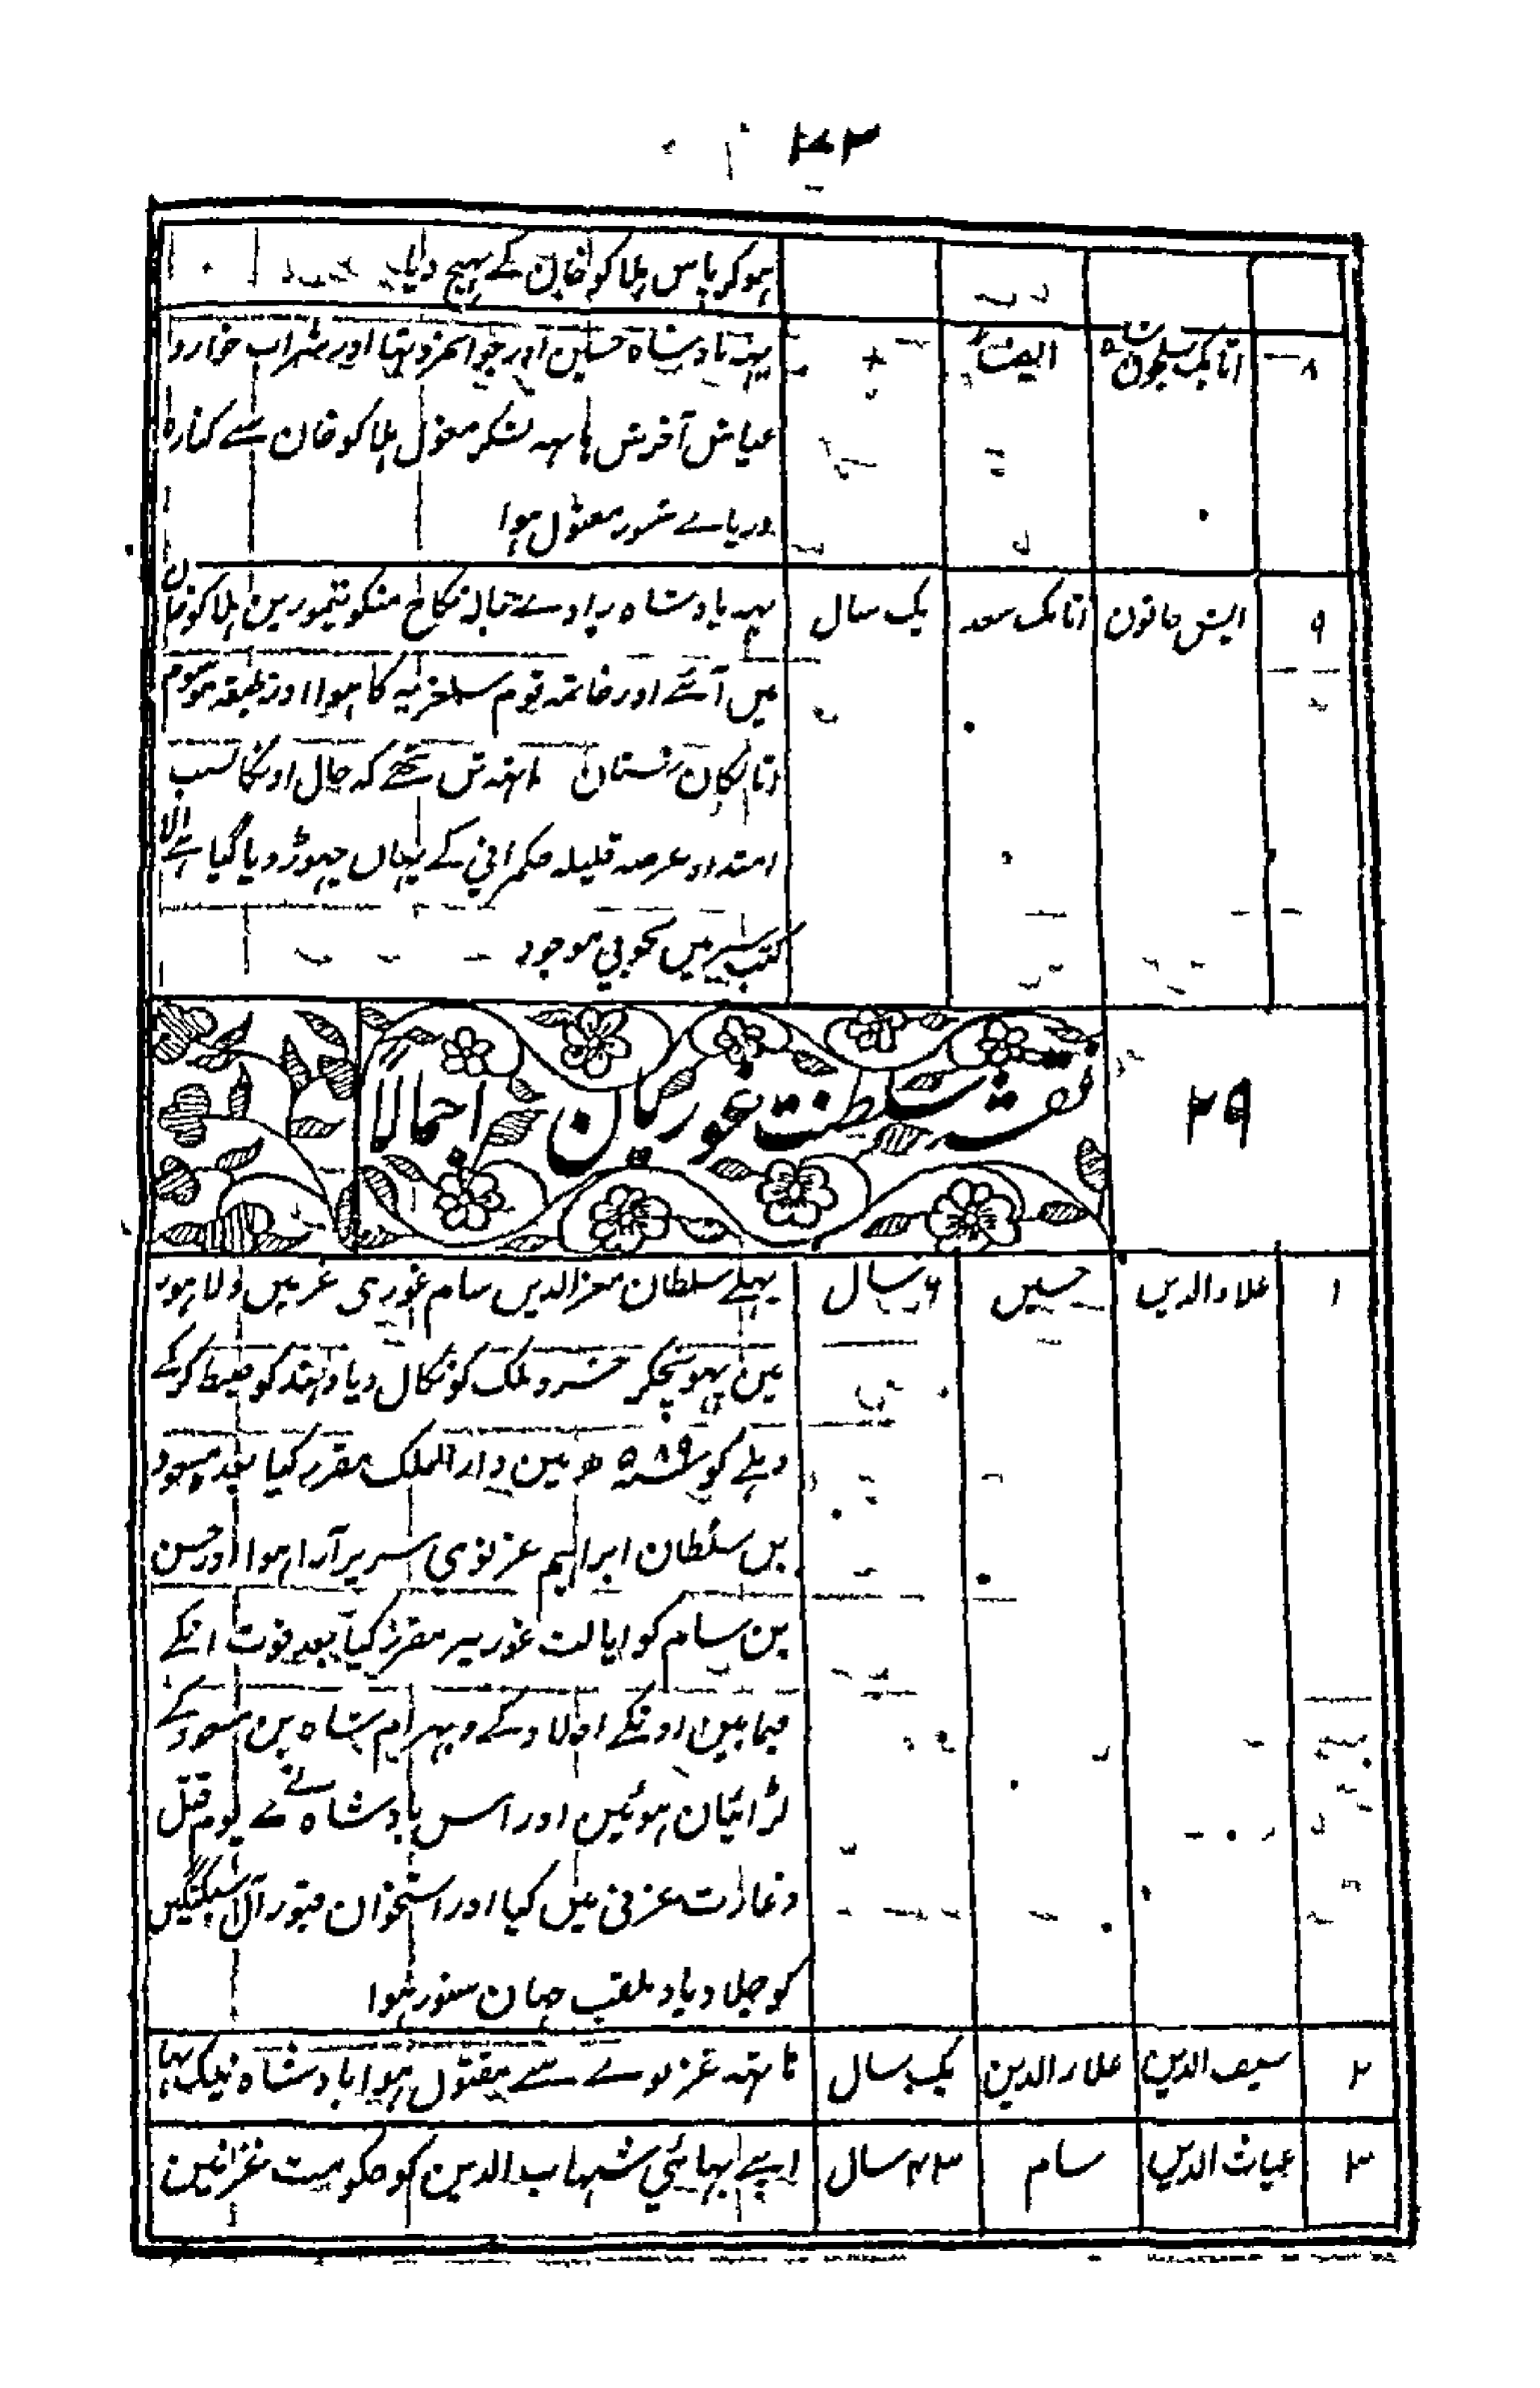 ۴۳
ہوکر پاس ہلاکو خان کے بہیج دیا
۸ اتابک سلجوق شاہ ایضاً یہہ بادشاہ حسین اور جوانمرد تہا اور شراب خوار و
عیاش آخرش ہاتہہ لشکر مغول ہلاکو خان سے کنارہ
دریاے شور مقتول ہوا
۹ ایش خاتون اتابک سعد یک سال یہہ بادشاہ زادے حبالہ نکاح منکو تیمور بن ہلاکو خان
میں آئے اور خاتمہ قوم سلغریہ کا ہوا اور طبقہ موسوم
اتابکان تہے کہ حال اونکا بسبب
امتداد عرصہ قلیلہ حکمرانی کے یہاں چہوڑ دیا گیا ہے الا
کتب سیر میں بخوبی موجود
۲۹ نقشہ سلطنت غوریان اجمالاً
۱ علاء الدین حسین ۶ سال پہلے سلطان معز الدین سام غوری غر میں ولاہور
مین پہونچکر خسرو ملک کو نکال دیا و ہند کو ضبط کرکے
دہلے کو ۵۸۹ ھ مین دار الملک مقرر کیا بعد مسعود
بن سلطان ابراہیم غزنوی سریر آرا ہوا اور حسن
بن سام کو ایالت غور پر مقرر کیا بعد فوت انکے
فیما بین اونکے اولاد کے و بہرام شاہ بن مسعود کے
لڑائیان ہوئین اور اس بادشاہ نے ۷ یوم قتل
و غارت غزنی میں کیا اور استخوان قبور آل سبکتگین
کو جلا دیا و ملقب جہان سوز ہوا
۲ سیف الدین علاء الدین یک سال ہاتہہ غزنوے سے مقتول ہوا بادشاہ نیک تہا
۳ غیاث الدین سام ۴۳ سال اپنے بہائی شہاب الدین کو حکومت غزنین